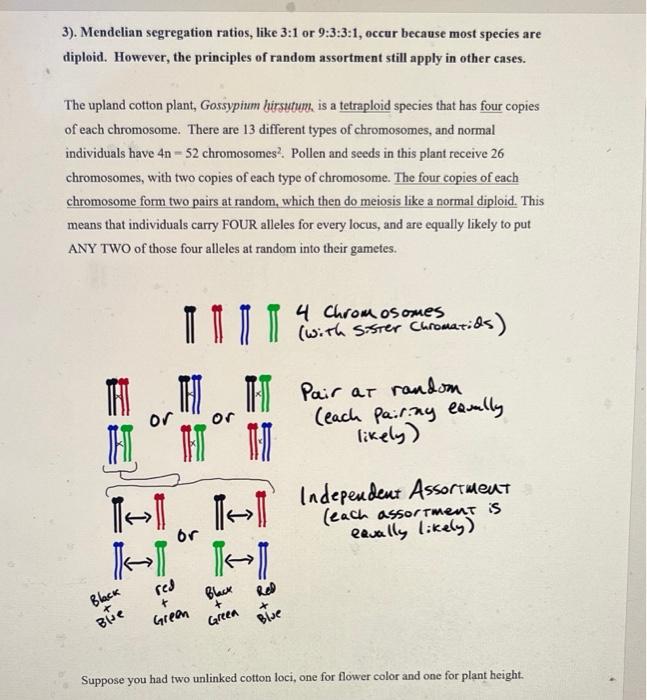 3). Mendelian segregation ratios, like 3:1 or 9:3:3:1, occur because most species are
diploid. However, the principles of random assortment still apply in other cases.
The upland cotton plant, Gossypium hirsutum, is a tetraploid species that has four copies
of each chromosome. There are 13 different types of chromosomes, and normal
individuals have 4n = 52 chromosomes². Pollen and seeds in this plant receive 26
chromosomes, with two copies of each type of chromosome. The four copies of each
chromosome form two pairs at random, which then do meiosis like a normal diploid. This
means that individuals carry FOUR alleles for every locus, and are equally likely to put
ANY TWO of those four alleles at random into their gametes.
4 Chromosomes
(with sister chromatids)
Pair at random
(each pairing equally
likely)
or or
Independent Assortment
(each assortment is
equally likely)
or
Black + Blue
red + Green
Black + Green
Red + Blue
Suppose you had two unlinked cotton loci, one for flower color and one for plant height.